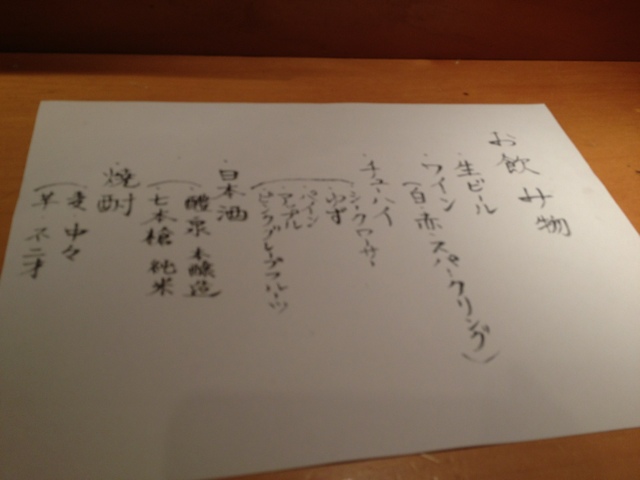 お飲み物
・生ビール
・ワイン
(白・赤・スパークリング)
・チューハイ
・シークヮーサー
・ゆず
・パイン
・アップル
・ピンクグレープフルーツ
・日本酒
醴泉 本醸造
七本槍 純米
・焼酎
麦 中々
芋 不二才